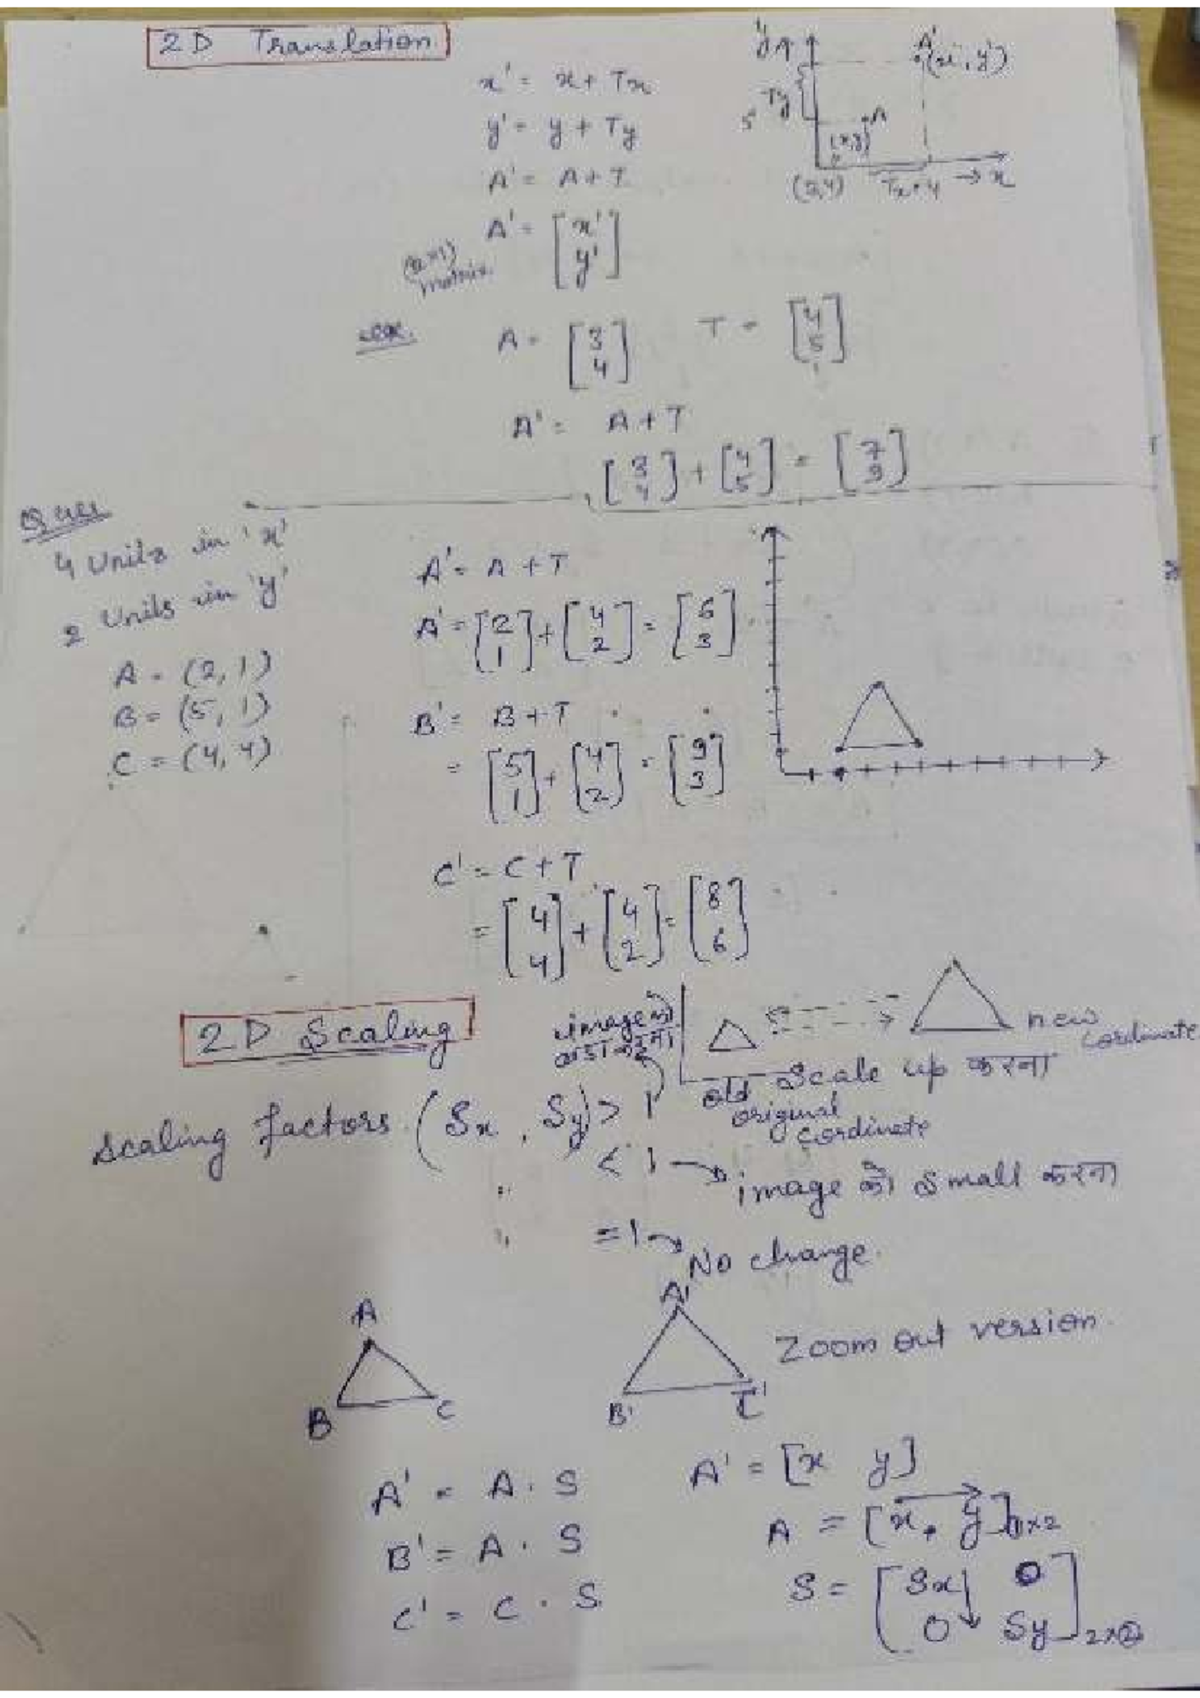 2D Translation
x' = x + Tx
y' = y + Ty
A' = A + T
A' = [x' y']
(2×1) matrix
y
A'
(x', y')
Ty
5
A
(x,y)
(3,4)
Tx=4 → x
ex.
A = [3 4] T = [4 5]
A' = A + T
[3 4] + [4 5] = [7 9]
Ques
4 Units in 'x'
2 Units in 'y'
A = (2, 1)
B = (5, 1)
C = (4, 4)
A' = A + T
A' = [2 1] + [4 2] = [6 3]
B' = B + T
= [5 1] + [4 2] = [9 3]
C' = C + T
= [4 4] + [4 2] = [8 6]
2D Scaling
image को
बड़ा करना
new cordinate
old original cordinate
Scale up करना
Scaling factors (Sx, Sy) > 1
" < 1 → image को small करना
" = 1 → No change.
A
B
C
A'
B'
C'
Zoom out version.
A' = A . S
B' = A . S
C' = C . S
A' = [x y]
A = [x, y]1×2
S = [Sx 0
0 Sy]2×2